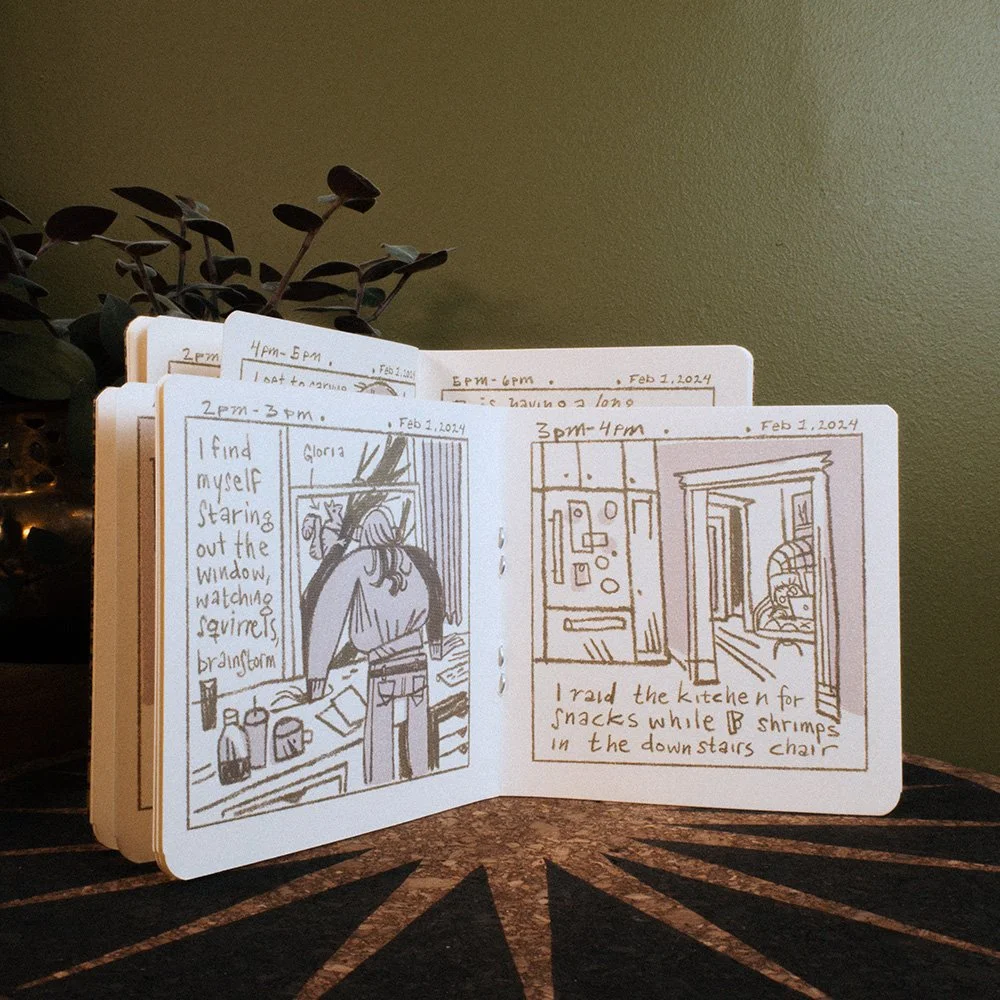 2pm
4pm - 5pm .
. Feb 1, 2024
I get to carving
5pm - 6pm .
. Feb 1, 2024
is having a long
2pm - 3pm .
. Feb 1, 2024
I find
myself
staring
out the
window,
watching
squirrels,
brainstorm
Gloria
3pm - 4pm .
. Feb 1, 2024
I raid the kitchen for
snacks while B shrimps
in the downstairs chair